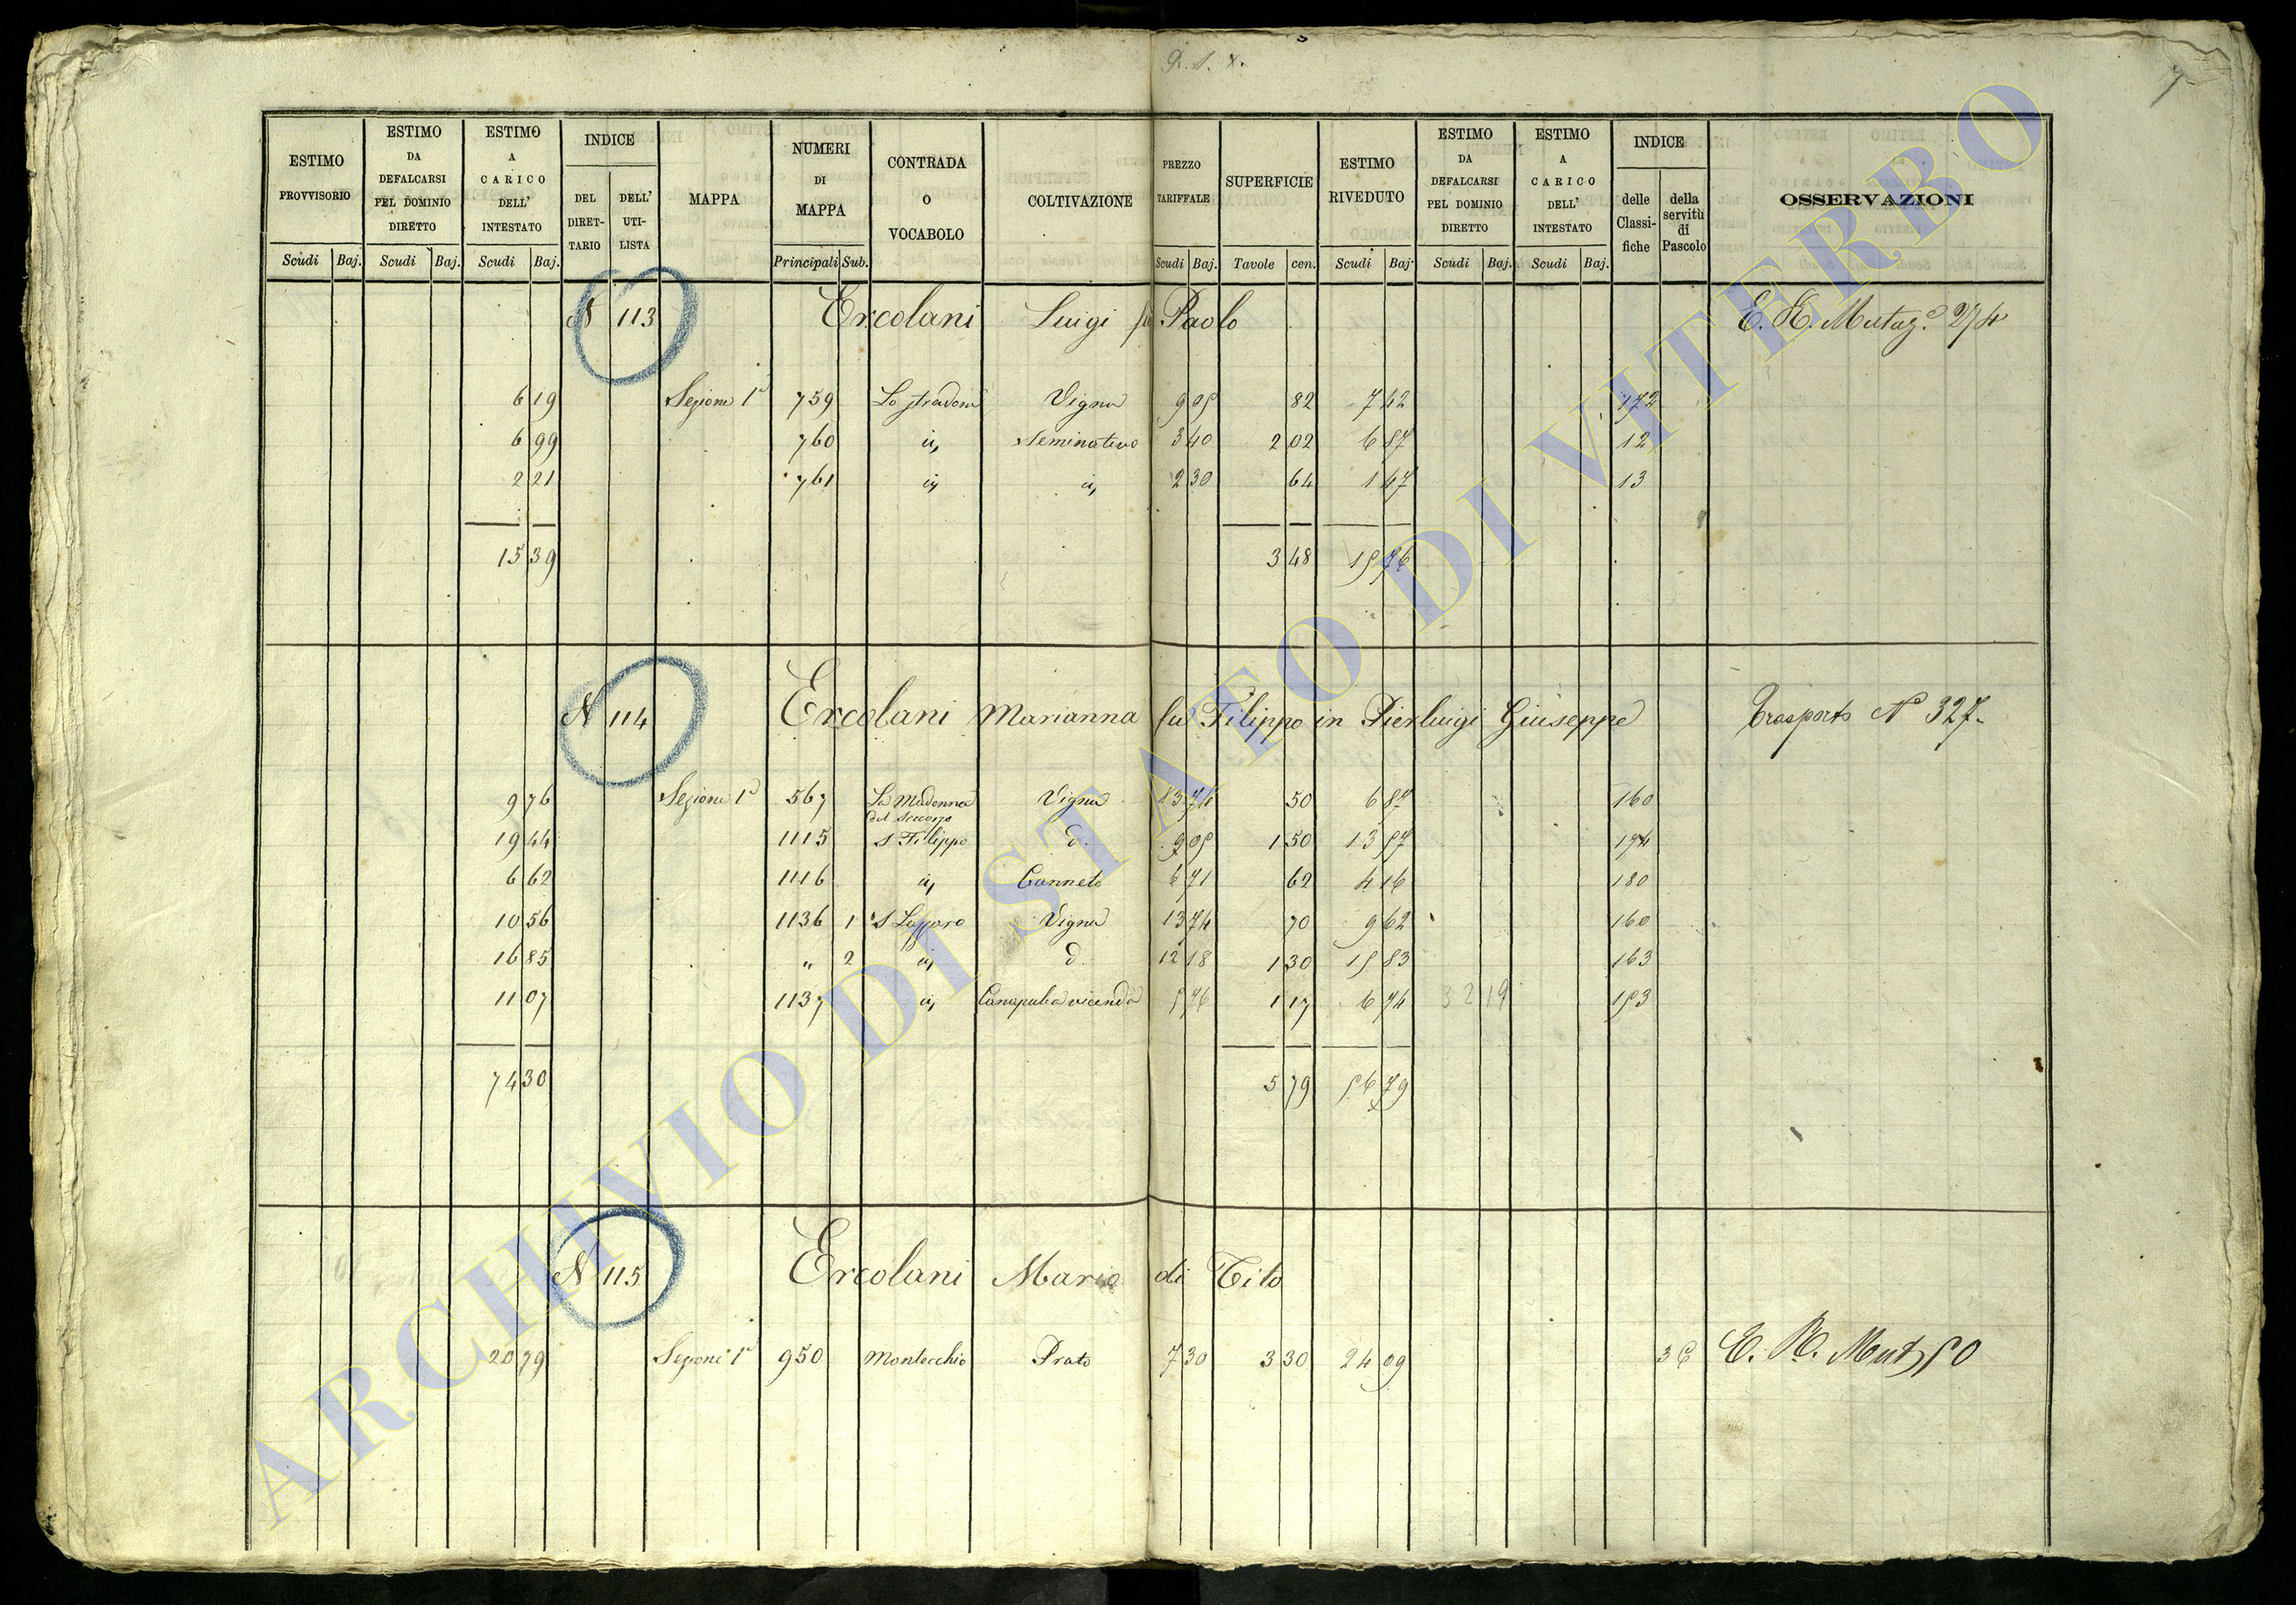 Q. S. X.
ESTIMO PROVVISORIO | ESTIMO DA DEFALCARSI PEL DOMINIO DIRETTO | ESTIMO A CARICO DELL' INTESTATO | INDICE DEL DIRET-TARIO | DELL' UTI-LISTA | MAPPA | NUMERI DI MAPPA | CONTRADA O VOCABOLO | COLTIVAZIONE | PREZZO TARIFFALE | SUPERFICIE | ESTIMO RIVEDUTO | ESTIMO DA DEFALCARSI PEL DOMINIO DIRETTO | ESTIMO A CARICO DELL' INTESTATO | INDICE delle Classi-fiche | della servitù di Pascolo | OSSERVAZIONI
Scudi Baj. | Scudi Baj. | Scudi Baj. | Principali Sub. | Scudi Baj. | Tavole cen. | Scudi Baj. | Scudi Baj. | Scudi Baj.
N 113 Ercolani Luigi fu Paolo E. R. Mutaz.e 274
6 19 Sezione 1a 759 Lo stradone Vigna 9 05 82 7 42 172
6 99 760 id, Seminativo 3 40 2 02 6 87 12
2 21 761 id, id, 2 30 64 1 47 13
15 39 3 48 15 76
N 114 Ercolani Marianna fu Filippo in Pierluigi Giuseppe Trasporto No 327
9 76 Sezione 1a 567 La Madonna del Soccorso Vigna 13 74 50 6 87 160
19 44 1115 S Filippo d. 9 05 1 50 13 57 174
6 62 1116 id, Canneto 6 71 62 4 16 180
10 56 1136 1 S Lazzaro Vigna 13 74 70 9 62 160
16 85 " 2 id, d. 12 18 1 30 15 83 163
11 07 1137 id, Canapula vicenda 5 76 1 17 6 74 32 19 153
74 30 5 79 56 79
N 115 Ercolani Maria di Tito
20 79 Sezione 1a 950 Montecchio Prato 7 30 3 30 24 09 36 E. R. Mut 50
ARCHIVIO DI STATO DI VITERBO